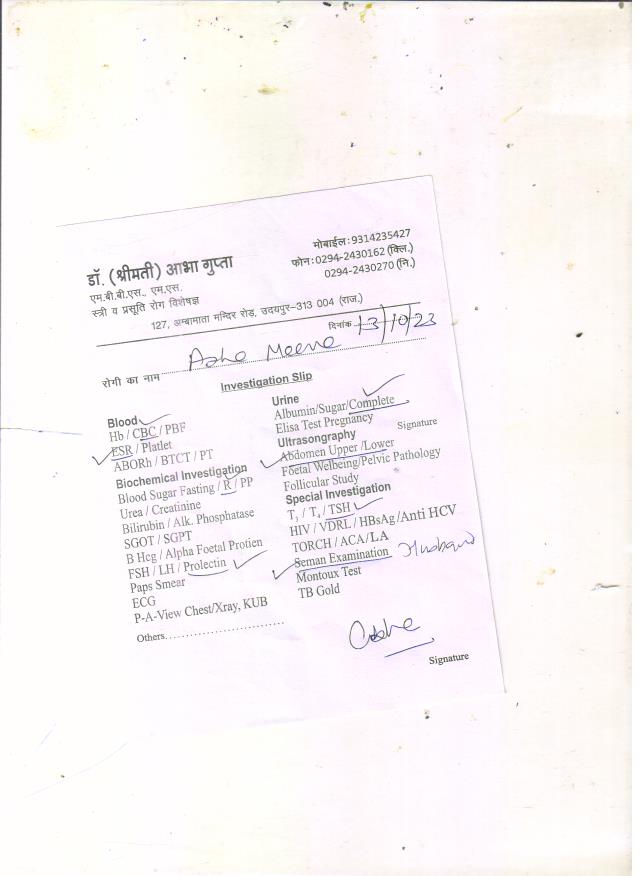 डॉ. (श्रीमती) आभा गुप्ता
एम.बी.बी.एस., एम.एस.
स्त्री व प्रसूति रोग विशेषज्ञ
मोबाईल: 9314235427
फोन: 0294-2430162 (क्लि.)
0294-2430270 (नि.)
127, अम्बामाता मन्दिर रोड़, उदयपुर-313 004 (राज.)
दिनांक 13/10/23
रोगी का नाम Ashe Meena
Investigation Slip
Blood
Hb / CBC / PBF
ESR / Platlet
ABORh / BTCT / PT
Biochemical Investigation
Blood Sugar Fasting / R / PP
Urea / Creatinine
Bilirubin / Alk. Phosphatase
SGOT / SGPT
B Hcg / Alpha Foetal Protien
FSH / LH / Prolectin
Paps Smear
ECG
P-A-View Chest/Xray, KUB
Others...........................
Urine
Albumin/Sugar/Complete
Elisa Test Pregnancy
Signature
Ultrasongraphy
Abdomen Upper /Lower
Foetal Welbeing/Pelvic Pathology
Follicular Study
Special Investigation
T3 / T4 / TSH
HIV / VDRL / HBsAg /Anti HCV
TORCH / ACA/LA
Seman Examination Husband
Montoux Test
TB Gold
Signature